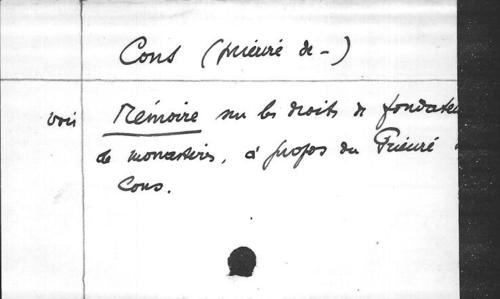 Cons (prieuré de -)
voir Mémoire sur les droits de fondateurs
de monastères, à propos du Prieuré
Cons.